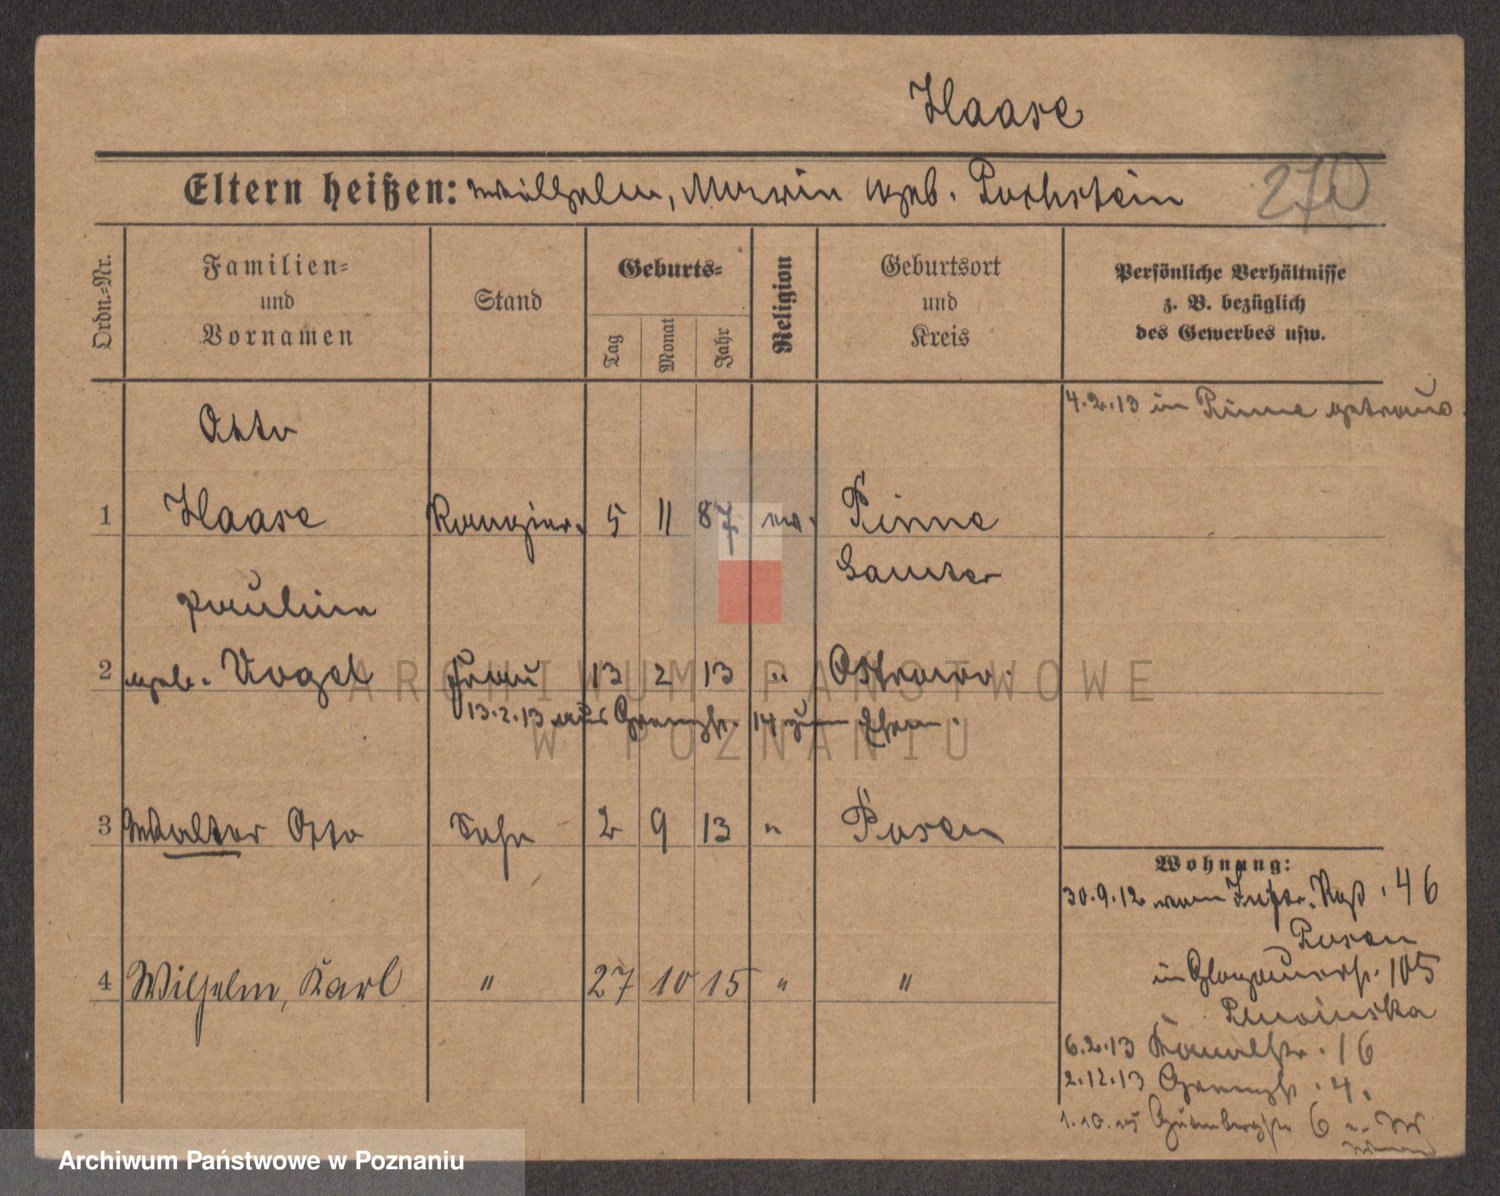 Haase
Eltern heißen: Wilhelm, Maria geb. Pochstein
270
Ordn.-Nr.
Familien-
und
Vornamen
Stand
Geburts-
Tag
Monat
Jahr
Religion
Geburtsort
und
Kreis
Persönliche Verhältnisse
z. B. bezüglich
des Gewerbes usw.
4.2.13 in Pinne getraut
Otto
1 Haase Rangier. 5 11 87 ev. Pinne
Samter
Paulina
2 geb. Vogel Frau 13 2 13 " Ostrowo.
13.2.13 aus Grenzstr. 14 zum Ehem.
3 Walter Otto Sohn 2 9 13 " Posen
4 Wilhelm, Karl " 27 10 15 " "
Wohnung:
30.9.12 vom Inftr. Rgt. 46
Posen
in Glogauerstr. 105
6.2.13 Kanalstr. 16
2.12.13 Grenzstr. 4.
1.10.15 Gutenbergstr 6
ARCHIWUM PAŃSTWOWE
W POZNANIU
Archiwum Państwowe w Poznaniu